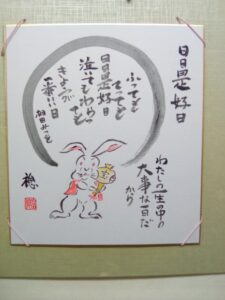 日日是好日
ふっても
てっても
日日是好日
泣いてもわらっ
ても
きょうが
一番いい日
相田みつを
わたしの一生の中の
大事な一日だ
から